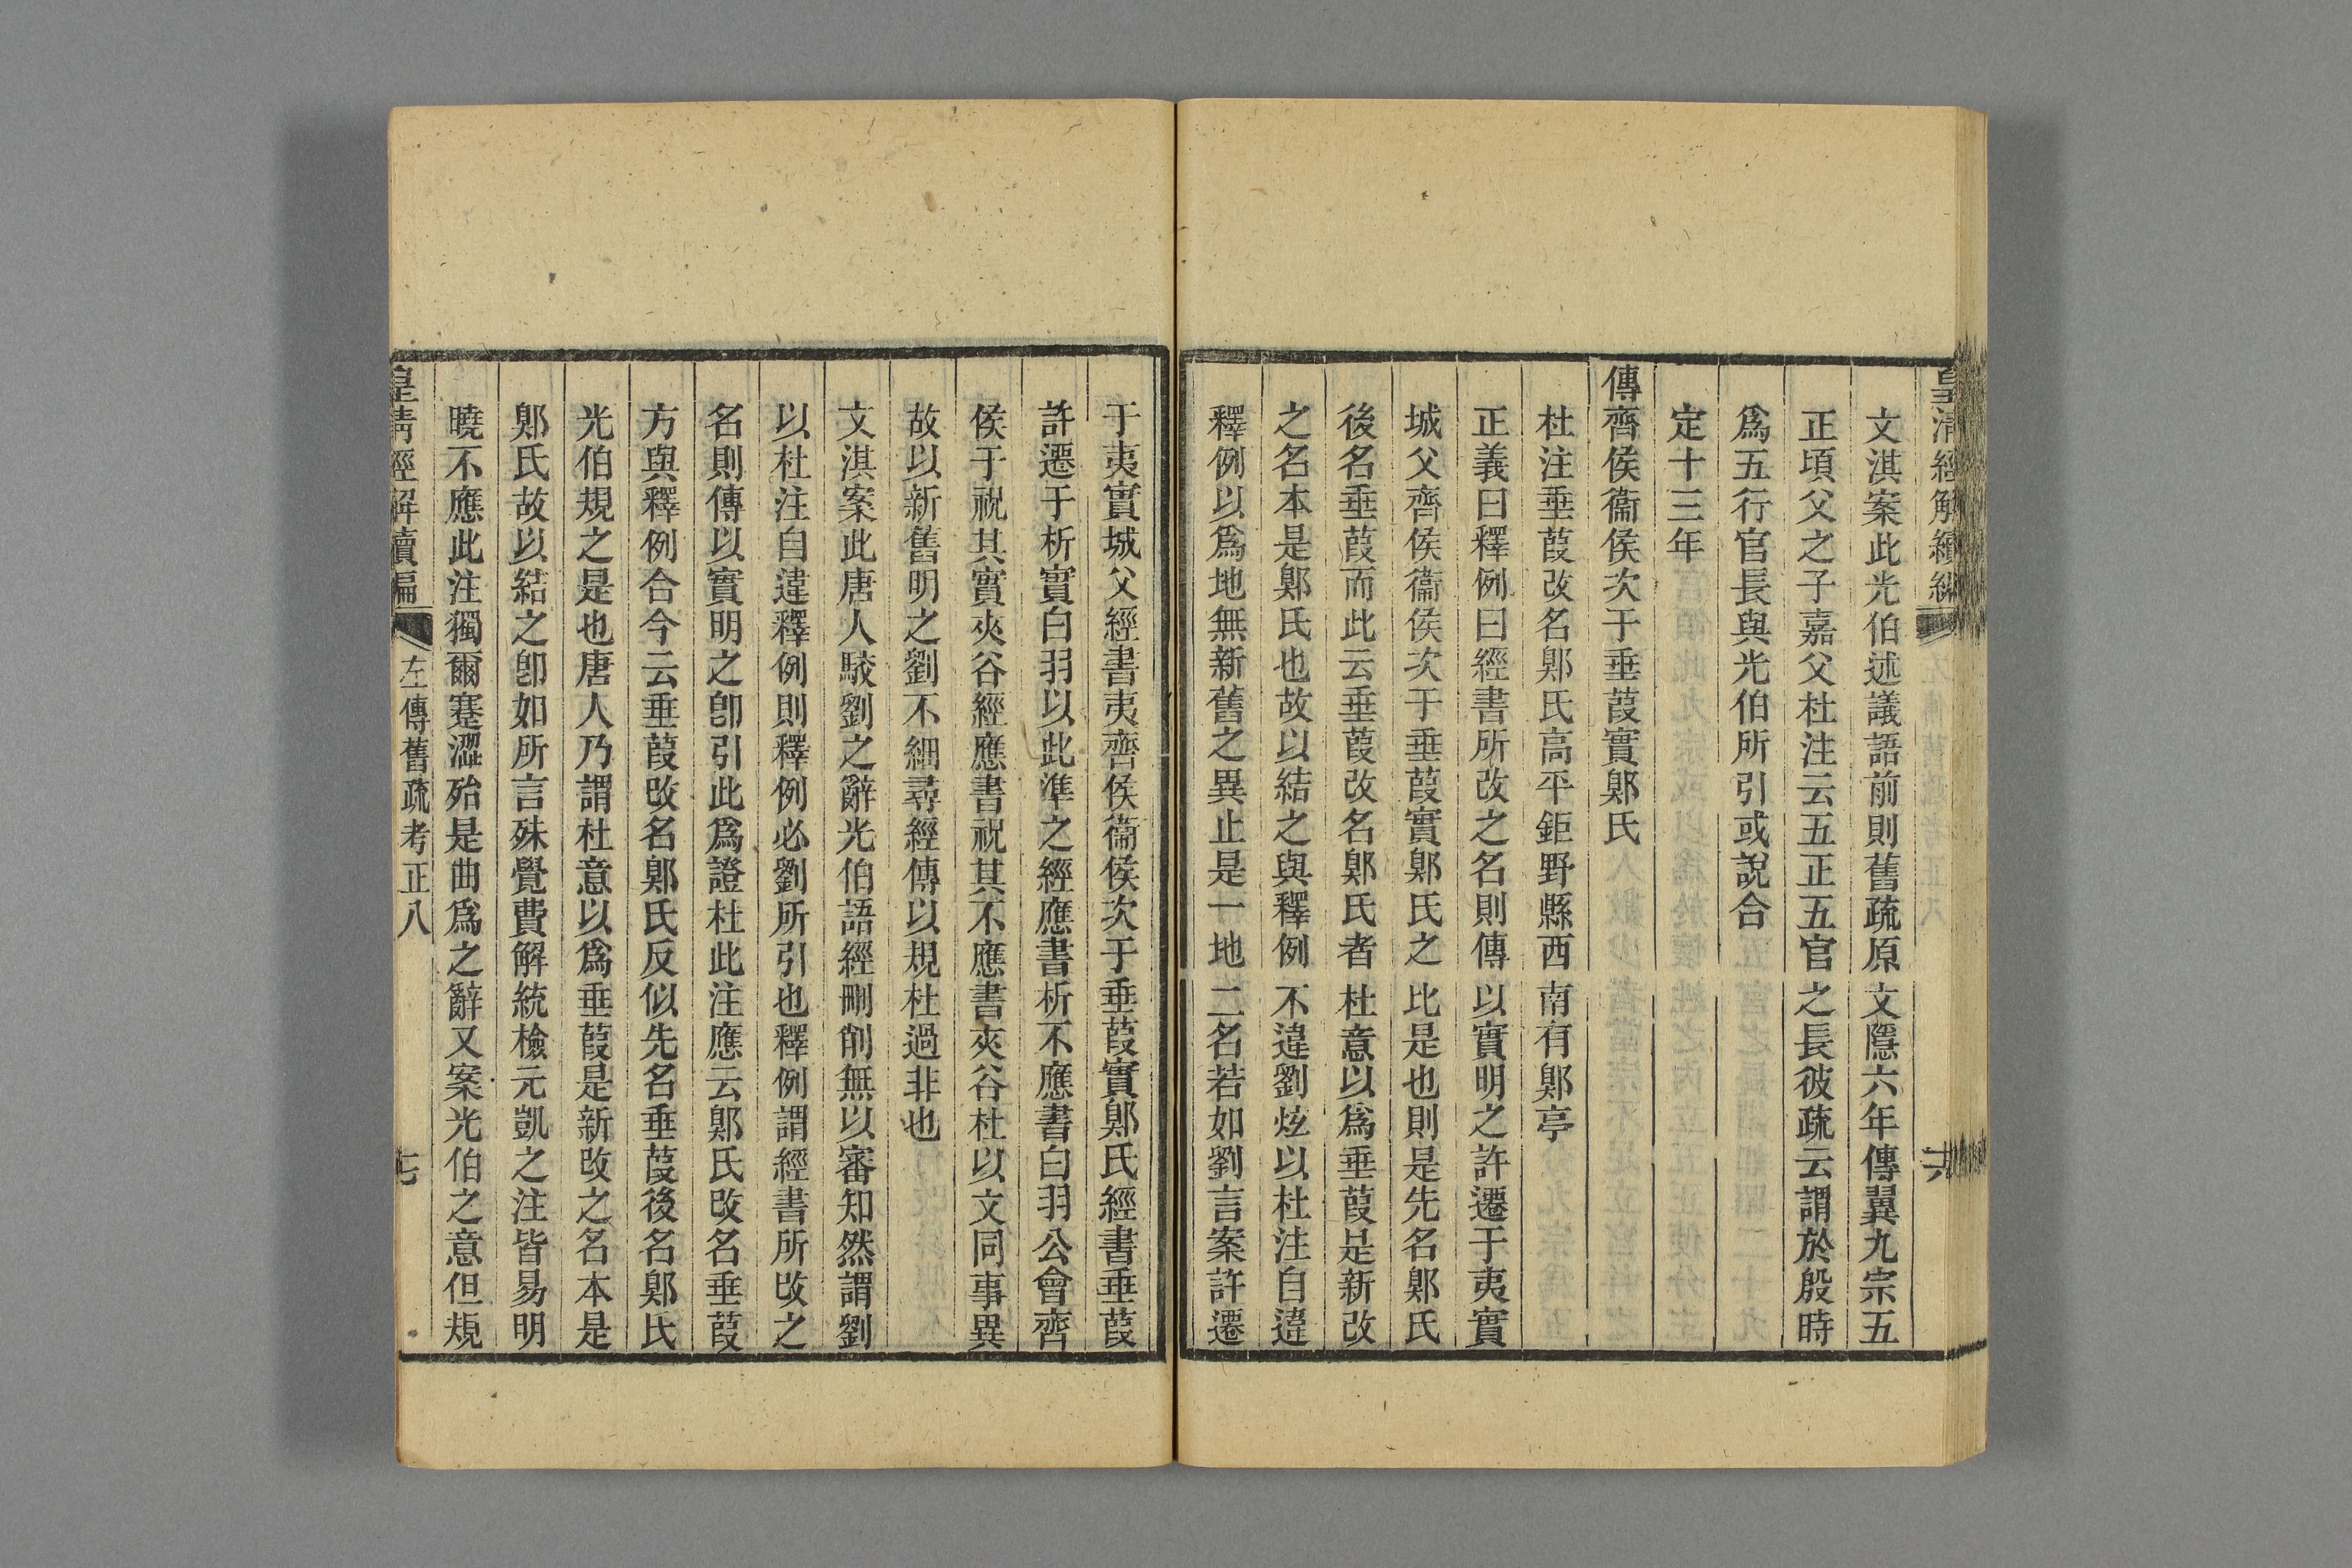 皇清經解續編
六
文淇案此光伯述議語前則舊疏原文隱六年傳翼九宗五
正頃父之子嘉父杜注云五正五官之長彼疏云謂於殷時
爲五行官長與光伯所引或說合
定十三年
傳齊侯衞侯次于垂葭實郹氏
杜注垂葭改名郹氏高平鉅野縣西南有郹亭
正義曰釋例曰經書所改之名則傳以實明之許遷于夷實
城父齊侯衞侯次于垂葭實郹氏之比是也則是先名郹氏
後名垂葭而此云垂葭改名郹氏者杜意以爲垂葭是新改
之名本是郹氏也故以結之與釋例不違劉炫以杜注自違
釋例以爲地無新舊之異止是一地二名若如劉言案許遷
于夷實城父經書夷齊侯衞侯次于垂葭實郹氏經書垂葭
許遷于析實白羽以此準之經應書析不應書白羽公會齊
侯于祝其實夾谷經應書祝其不應書夾谷杜以文同事異
故以新舊明之劉不細尋經傳以規杜過非也
文淇案此唐人駮劉之辭光伯語經刪削無以審知然謂劉
以杜注自違釋例則釋例必劉所引也釋例謂經書所改之
名則傳以實明之卽引此爲證杜此注應云郹氏改名垂葭
方與釋例合今云垂葭改名郹氏反似先名垂葭後名郹氏
光伯規之是也唐人乃謂杜意以爲垂葭是新改之名本是
郹氏故以結之卽如所言殊覺費解統檢元凱之注皆易明
曉不應此注獨爾蹇澀殆是曲爲之辭又案光伯之意但規
皇清經解續編
左傳舊疏考正八
七